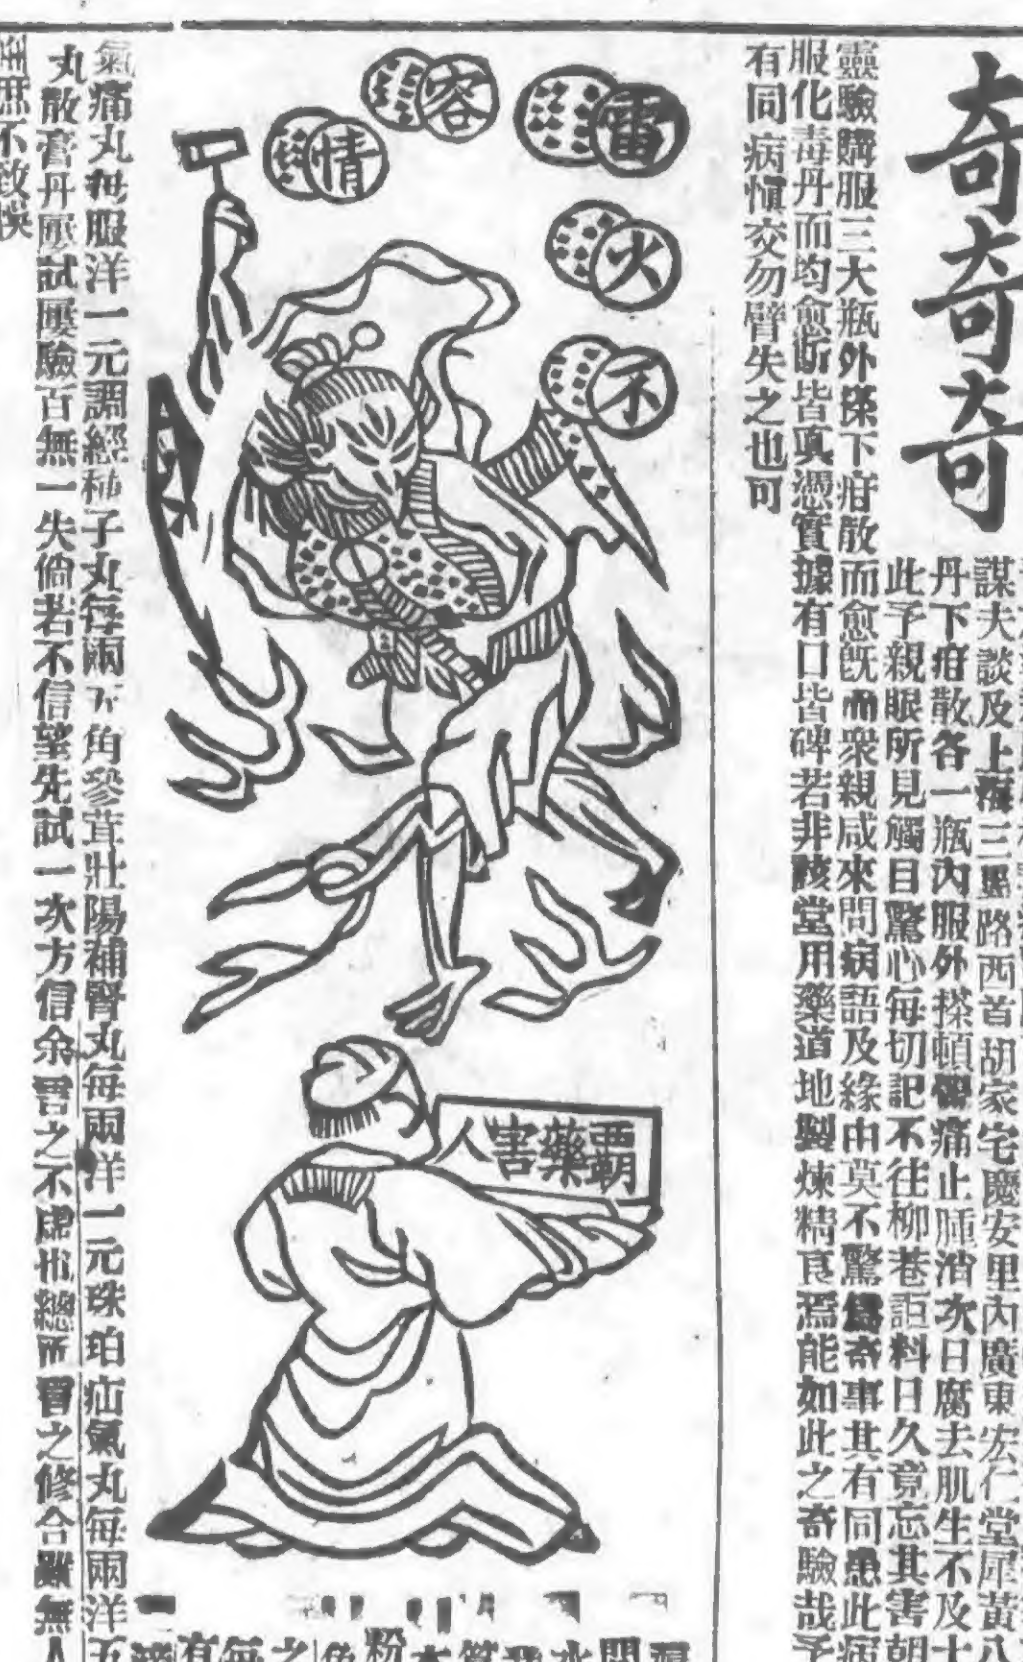 奇奇奇
謀夫談及上海三馬路西首胡家宅慶安里內廣東宏仁堂犀黃八
丹下疳散各一瓶內服外搽頓覺痛止腫消次日腐去肌生不及十
此予親眼所見觸目驚心每切記不往柳巷詎料日久竟忘其害朝
靈驗購服三大瓶外搽下疳散而愈旣而衆親咸來問病語及緣由莫不驚爲奇事其有同患此病
服化毒丹而均愈斷皆真憑實據有口皆碑若非該堂用藥道地製煉精良焉能如此之奇驗哉予
有同病愼交勿臂失之也可
雷火不容情
覇藥害人
氣痛丸每服洋一元調經種子丸每兩五角參茸壯陽補腎丸每兩洋一元珠珀疝氣丸每兩洋五
丸散膏丹屢試屢驗百無一失倘若不信望先試一次方信余言之不虛也總而言之修合雖無人
庶不致悞